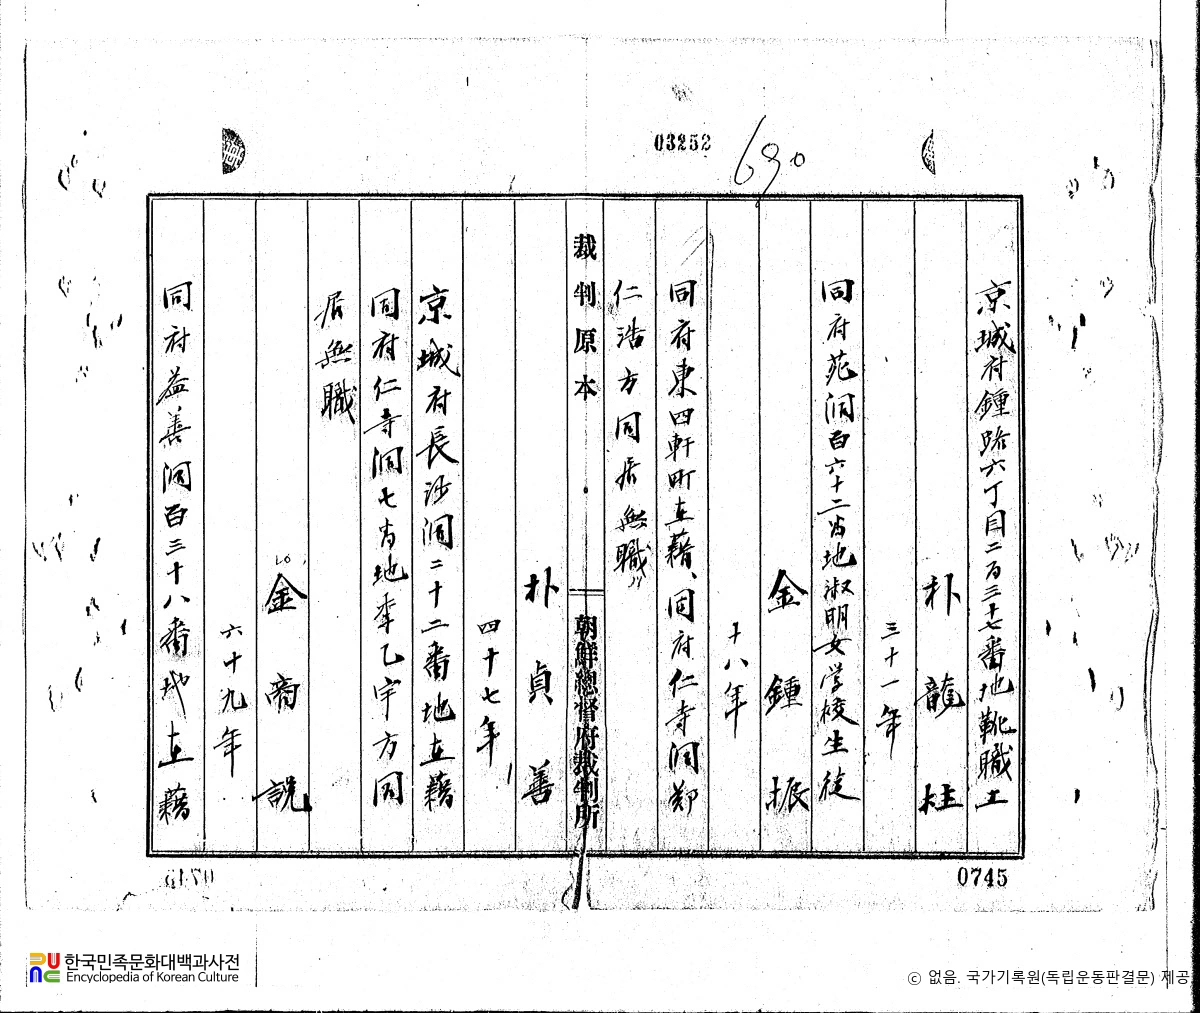 03252
690
京城府鍾路六丁目二百三十七番地靴職工
朴龍柱
三十一年
同府苑洞百六十二番地淑明女学校生徒
金鍾振
十八年
同府東四軒町在籍、同府仁寺洞鄭
仁浩方同居無職
裁判原本
朝鮮總督府裁判所
朴貞善
四十七年
京城府長沙洞二十二番地在籍
同府仁寺洞七番地李乙宇方同
居無職
金商説
六十九年
同府益善洞百三十八番地在籍
0745
한국민족문화대백과사전
Encyclopedia of Korean Culture
ⓒ 없음. 국가기록원(독립운동판결문) 제공